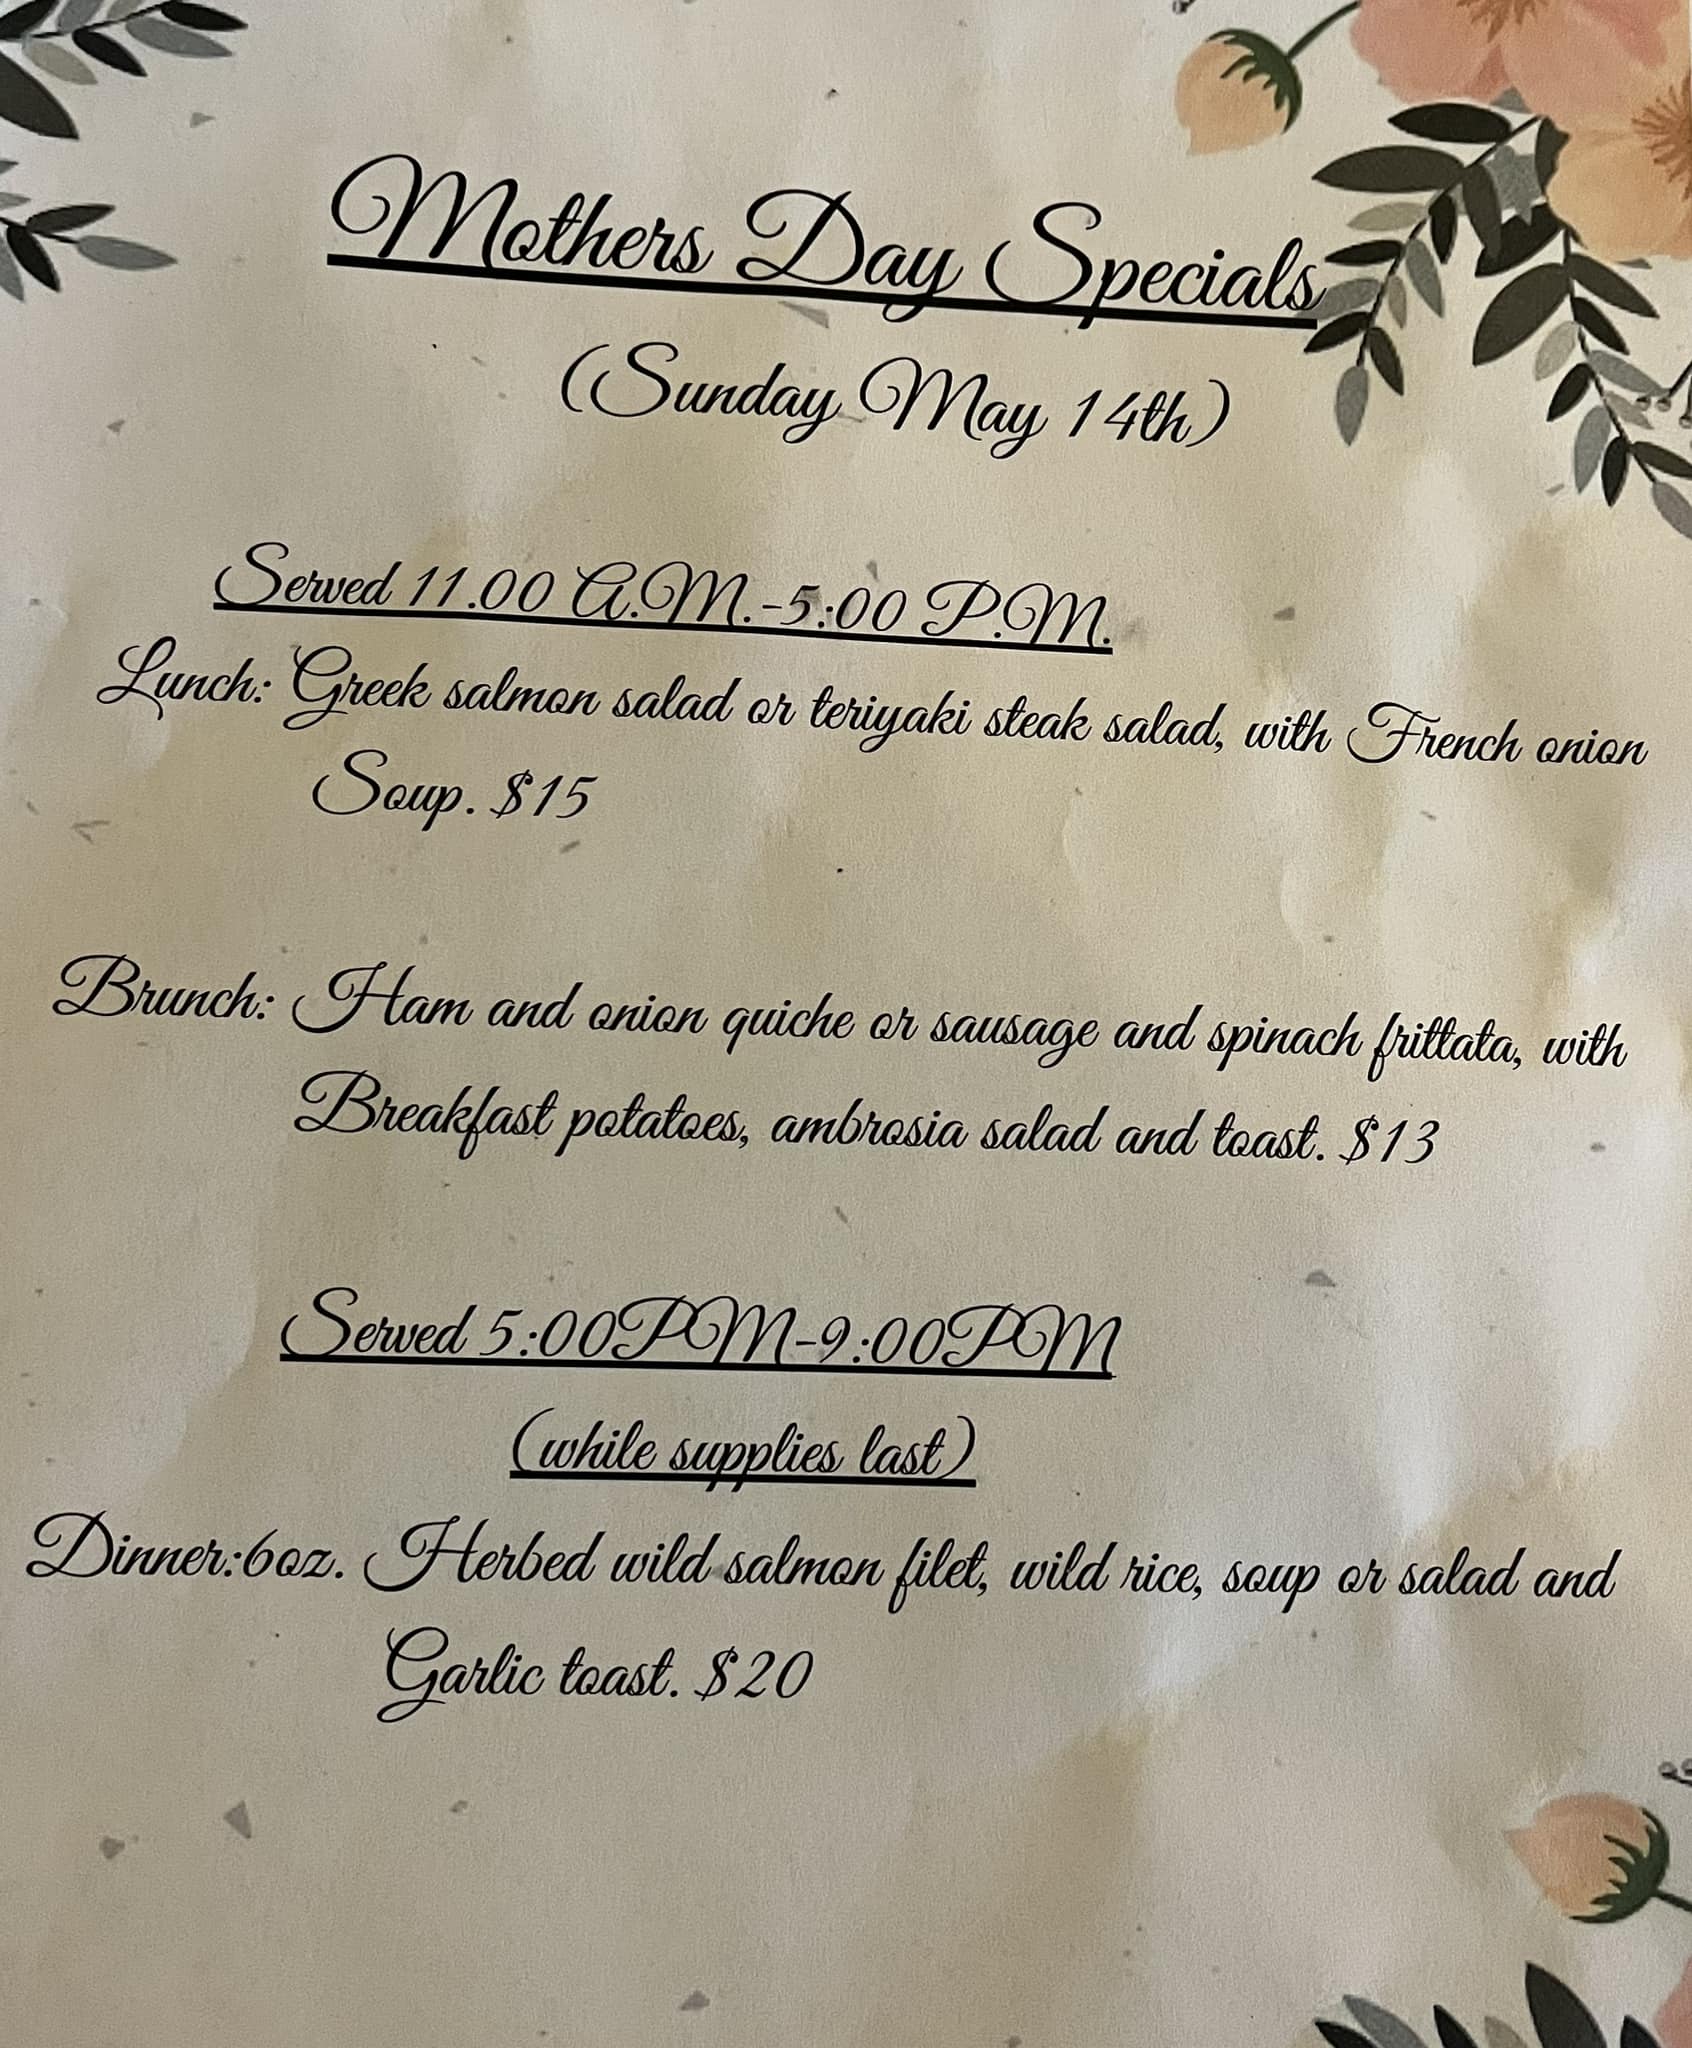 Mothers Day Specials
(Sunday May 14th)
Served 11.00 A.M.-5:00 P.M.
Lunch: Greek salmon salad or teriyaki steak salad, with French onion
Soup. $15
Brunch: Ham and onion quiche or sausage and spinach frittata, with
Breakfast potatoes, ambrosia salad and toast. $13
Served 5:00PM-9:00PM
(while supplies last)
Dinner:6oz. Herbed wild salmon filet, wild rice, soup or salad and
Garlic toast. $20